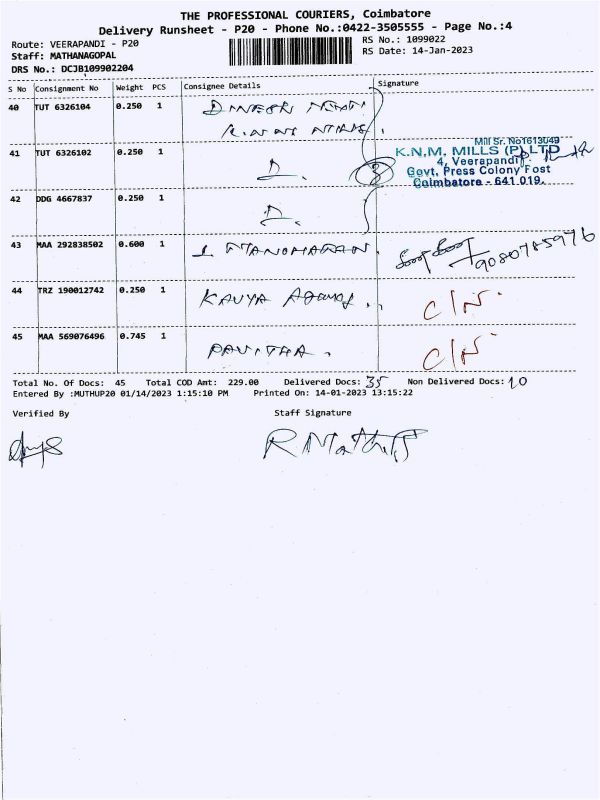 THE PROFESSIONAL COURIERS, Coimbatore
Delivery Runsheet - P20 - Phone No.:0422-3505555 - Page No.:4
Route: VEERAPANDI - P20
RS No.: 1099022
Staff: MATHANAGOPAL
RS Date: 14-Jan-2023
DRS No.: DCJB109902204
S No Consignment No Weight PCS Consignee Details Signature
40 TUT 6326104 0.250 1
41 TUT 6326102 0.250 1 D.
Mill Sr. No1613049
K.N.M. MILLS (P) LTD
4, Veerapandi
Govt, Press Colony Post
Coimbatore - 641 019.
3
42 DDG 4667837 0.250 1 D.
43 MAA 292838502 0.600 1 MANOHARAN. 9080785976
44 TRZ 190012742 0.250 1 KAVYA C/N.
45 MAA 569076496 0.745 1 PAVITHA. C/N
Total No. Of Docs: 45 Total COD Amt: 229.00 Delivered Docs: 35 Non Delivered Docs: 10
Entered By :MUTHUP20 01/14/2023 1:15:10 PM Printed On: 14-01-2023 13:15:22
Verified By Staff Signature